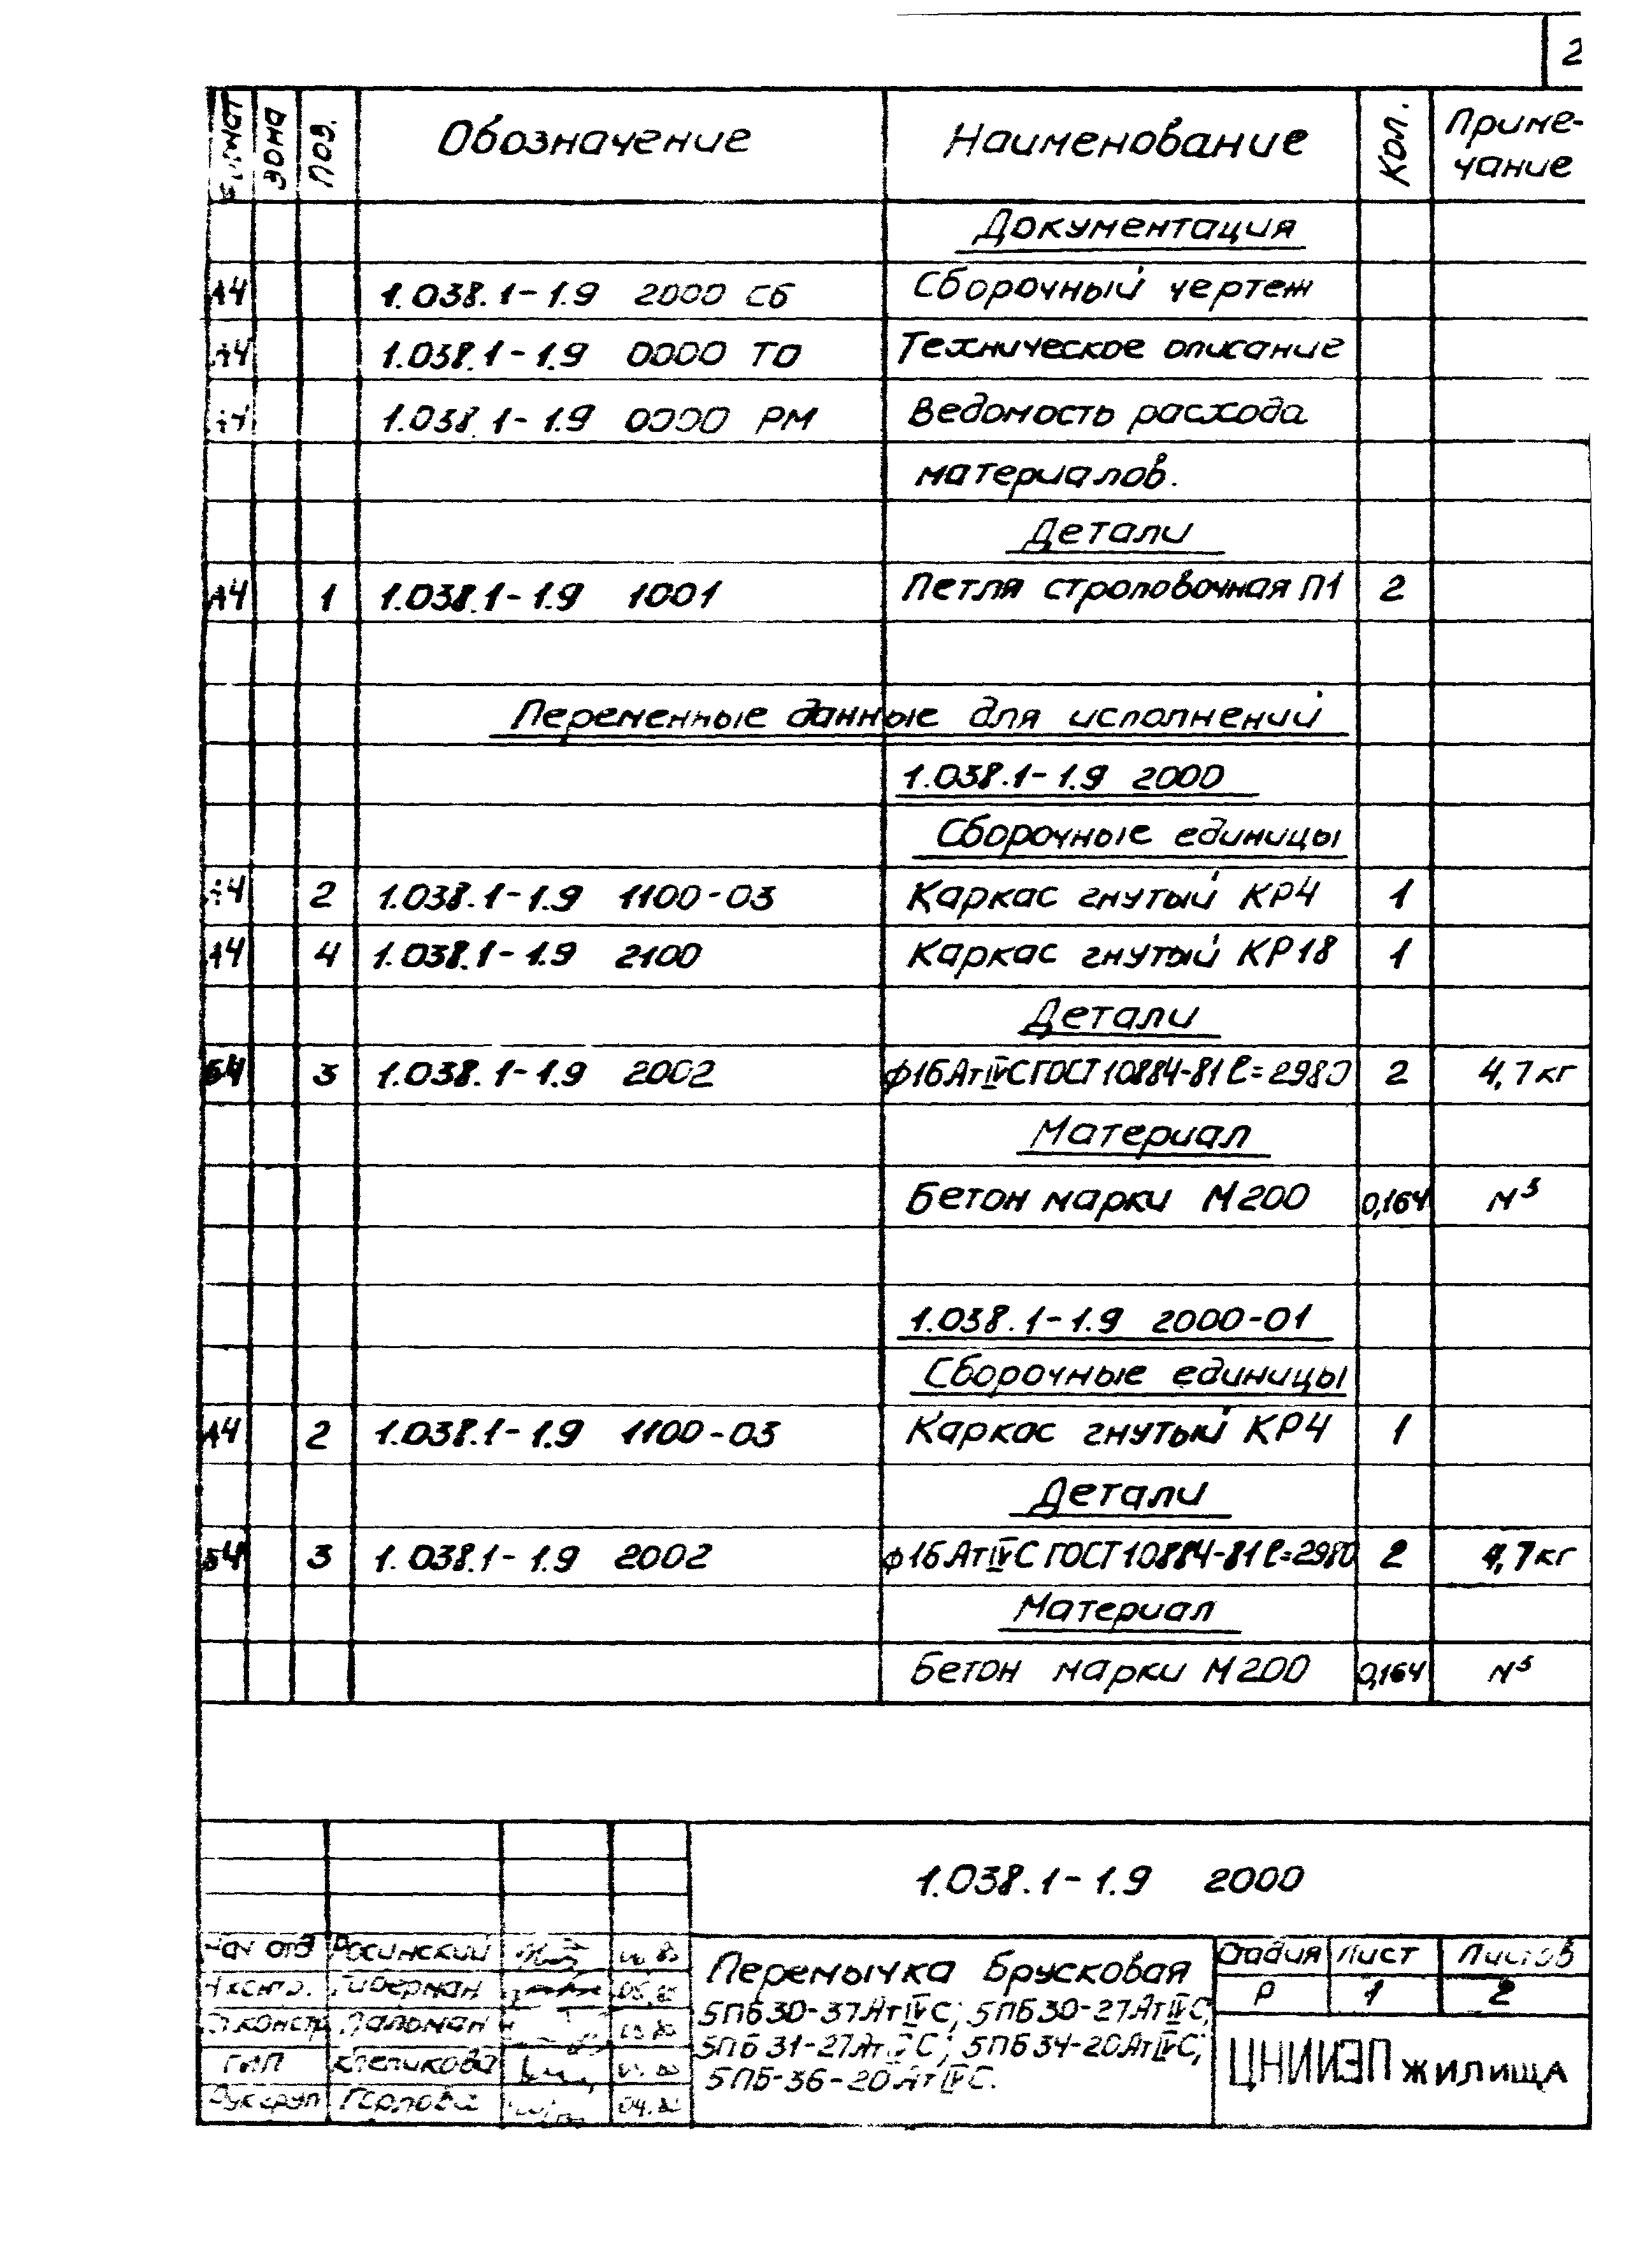 2
Формат Зона Поз. Обозначение Наименование Кол. Приме-
чание
Документация
А4 1.038.1-1.9 2000 СБ Сборочный чертеж
А4 1.038.1-1.9 0000 ТО Техническое описание
А4 1.038.1-1.9 0000 РМ Ведомость расхода
материалов.
Детали
А4 1 1.038.1-1.9 1001 Петля строповочная П1 2
Переменные данные для исполнений
1.038.1-1.9 2000
Сборочные единицы
А4 2 1.038.1-1.9 1100-03 Каркас гнутый КР4 1
А4 4 1.038.1-1.9 2100 Каркас гнутый КР18 1
Детали
Б4 3 1.038.1-1.9 2002 ф16АтIVС ГОСТ 10884-81 l=2980 2 4,7кг
Материал
Бетон марки М200 0,164 м³
1.038.1-1.9 2000-01
Сборочные единицы
А4 2 1.038.1-1.9 1100-03 Каркас гнутый КР4 1
Детали
Б4 3 1.038.1-1.9 2002 ф16АтIVС ГОСТ 10884-81 l=2980 2 4,7кг
Материал
Бетон марки М200 0,164 м³
1.038.1-1.9 2000
Нач отд Росинский
Н контр.
Гл констр
ГИП Клепикова
Рук груп 04.
Перемычка брусковая
5ПБ30-37АтIVС; 5ПБ30-27АтIVС;
5ПБ31-27АтIVС; 5ПБ34-20АтIVС;
5ПБ-36-20АтIVС.
Стадия Лист Листов
Р 1 2
ЦНИИЭП жилища